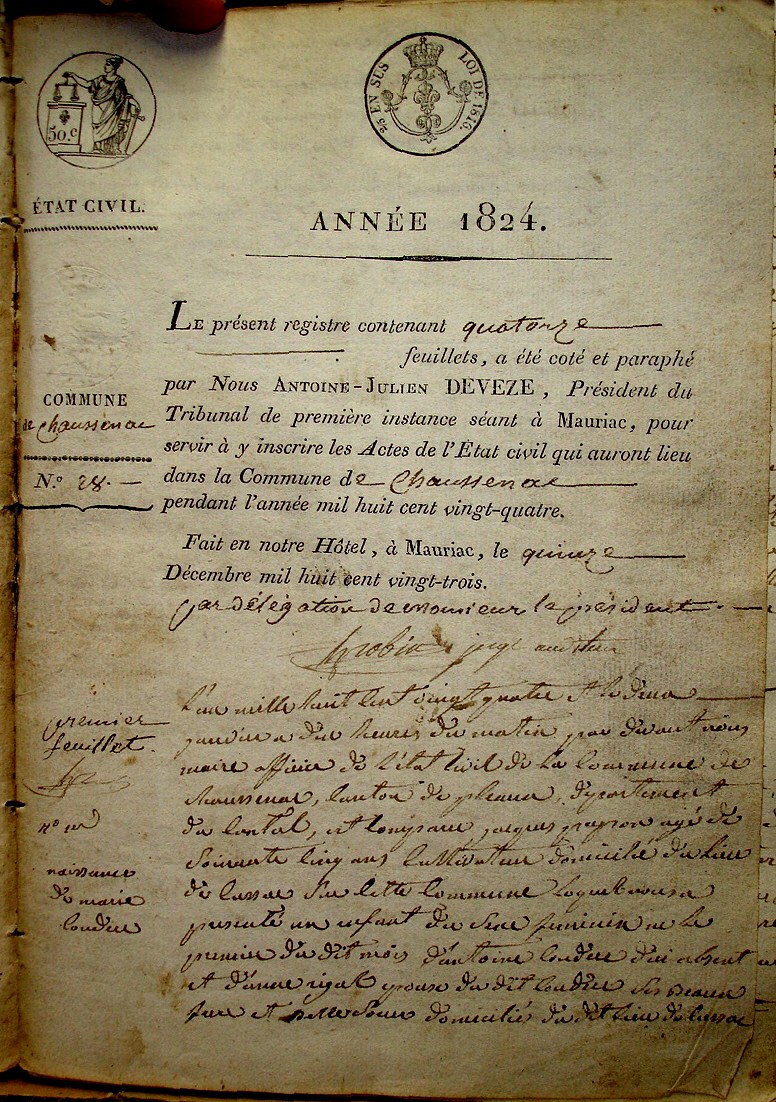 50.c
2/5 EN SUS LOI DE 1816.
ÉTAT CIVIL.
ANNÉE 1824.
LE présent registre contenant quatorze
feuillets, a été coté et paraphé
par Nous ANTOINE-JULIEN DEVEZE, Président du
Tribunal de première instance séant à Mauriac, pour
servir à y inscrire les Actes de l'État civil qui auront lieu
dans la Commune de Chaussenac
pendant l'année mil huit cent vingt-quatre.
COMMUNE
de Chaussenac
N.o 28.
Fait en notre Hôtel, à Mauriac, le quinze
Décembre mil huit cent vingt-trois.
par délégation de monsieur le président
juge auditeur
premier
feuillet.
n.o 1er
naissance
de marie
Coudere
L'an mille huit cent vingt quatre et le deux
janvier a dix heures du matin par devant nous
maire officier de l'état civil de la Commune de
Chaussenac, canton de pleaux, département
du Cantal, est comparu jacques agé de
Soixante cinq ans Cultivateur domicilié du lieu
de Cussac Sur Cette Commune Lequel nous a
presenté un enfant du Sexe feminin né le
premier du dit mois d'antoine Coudere absent
et d'anne rigal epouse du dit Coudere Ses beaux
frere et belle Soeur domiciliés du dit lieu de Cussac